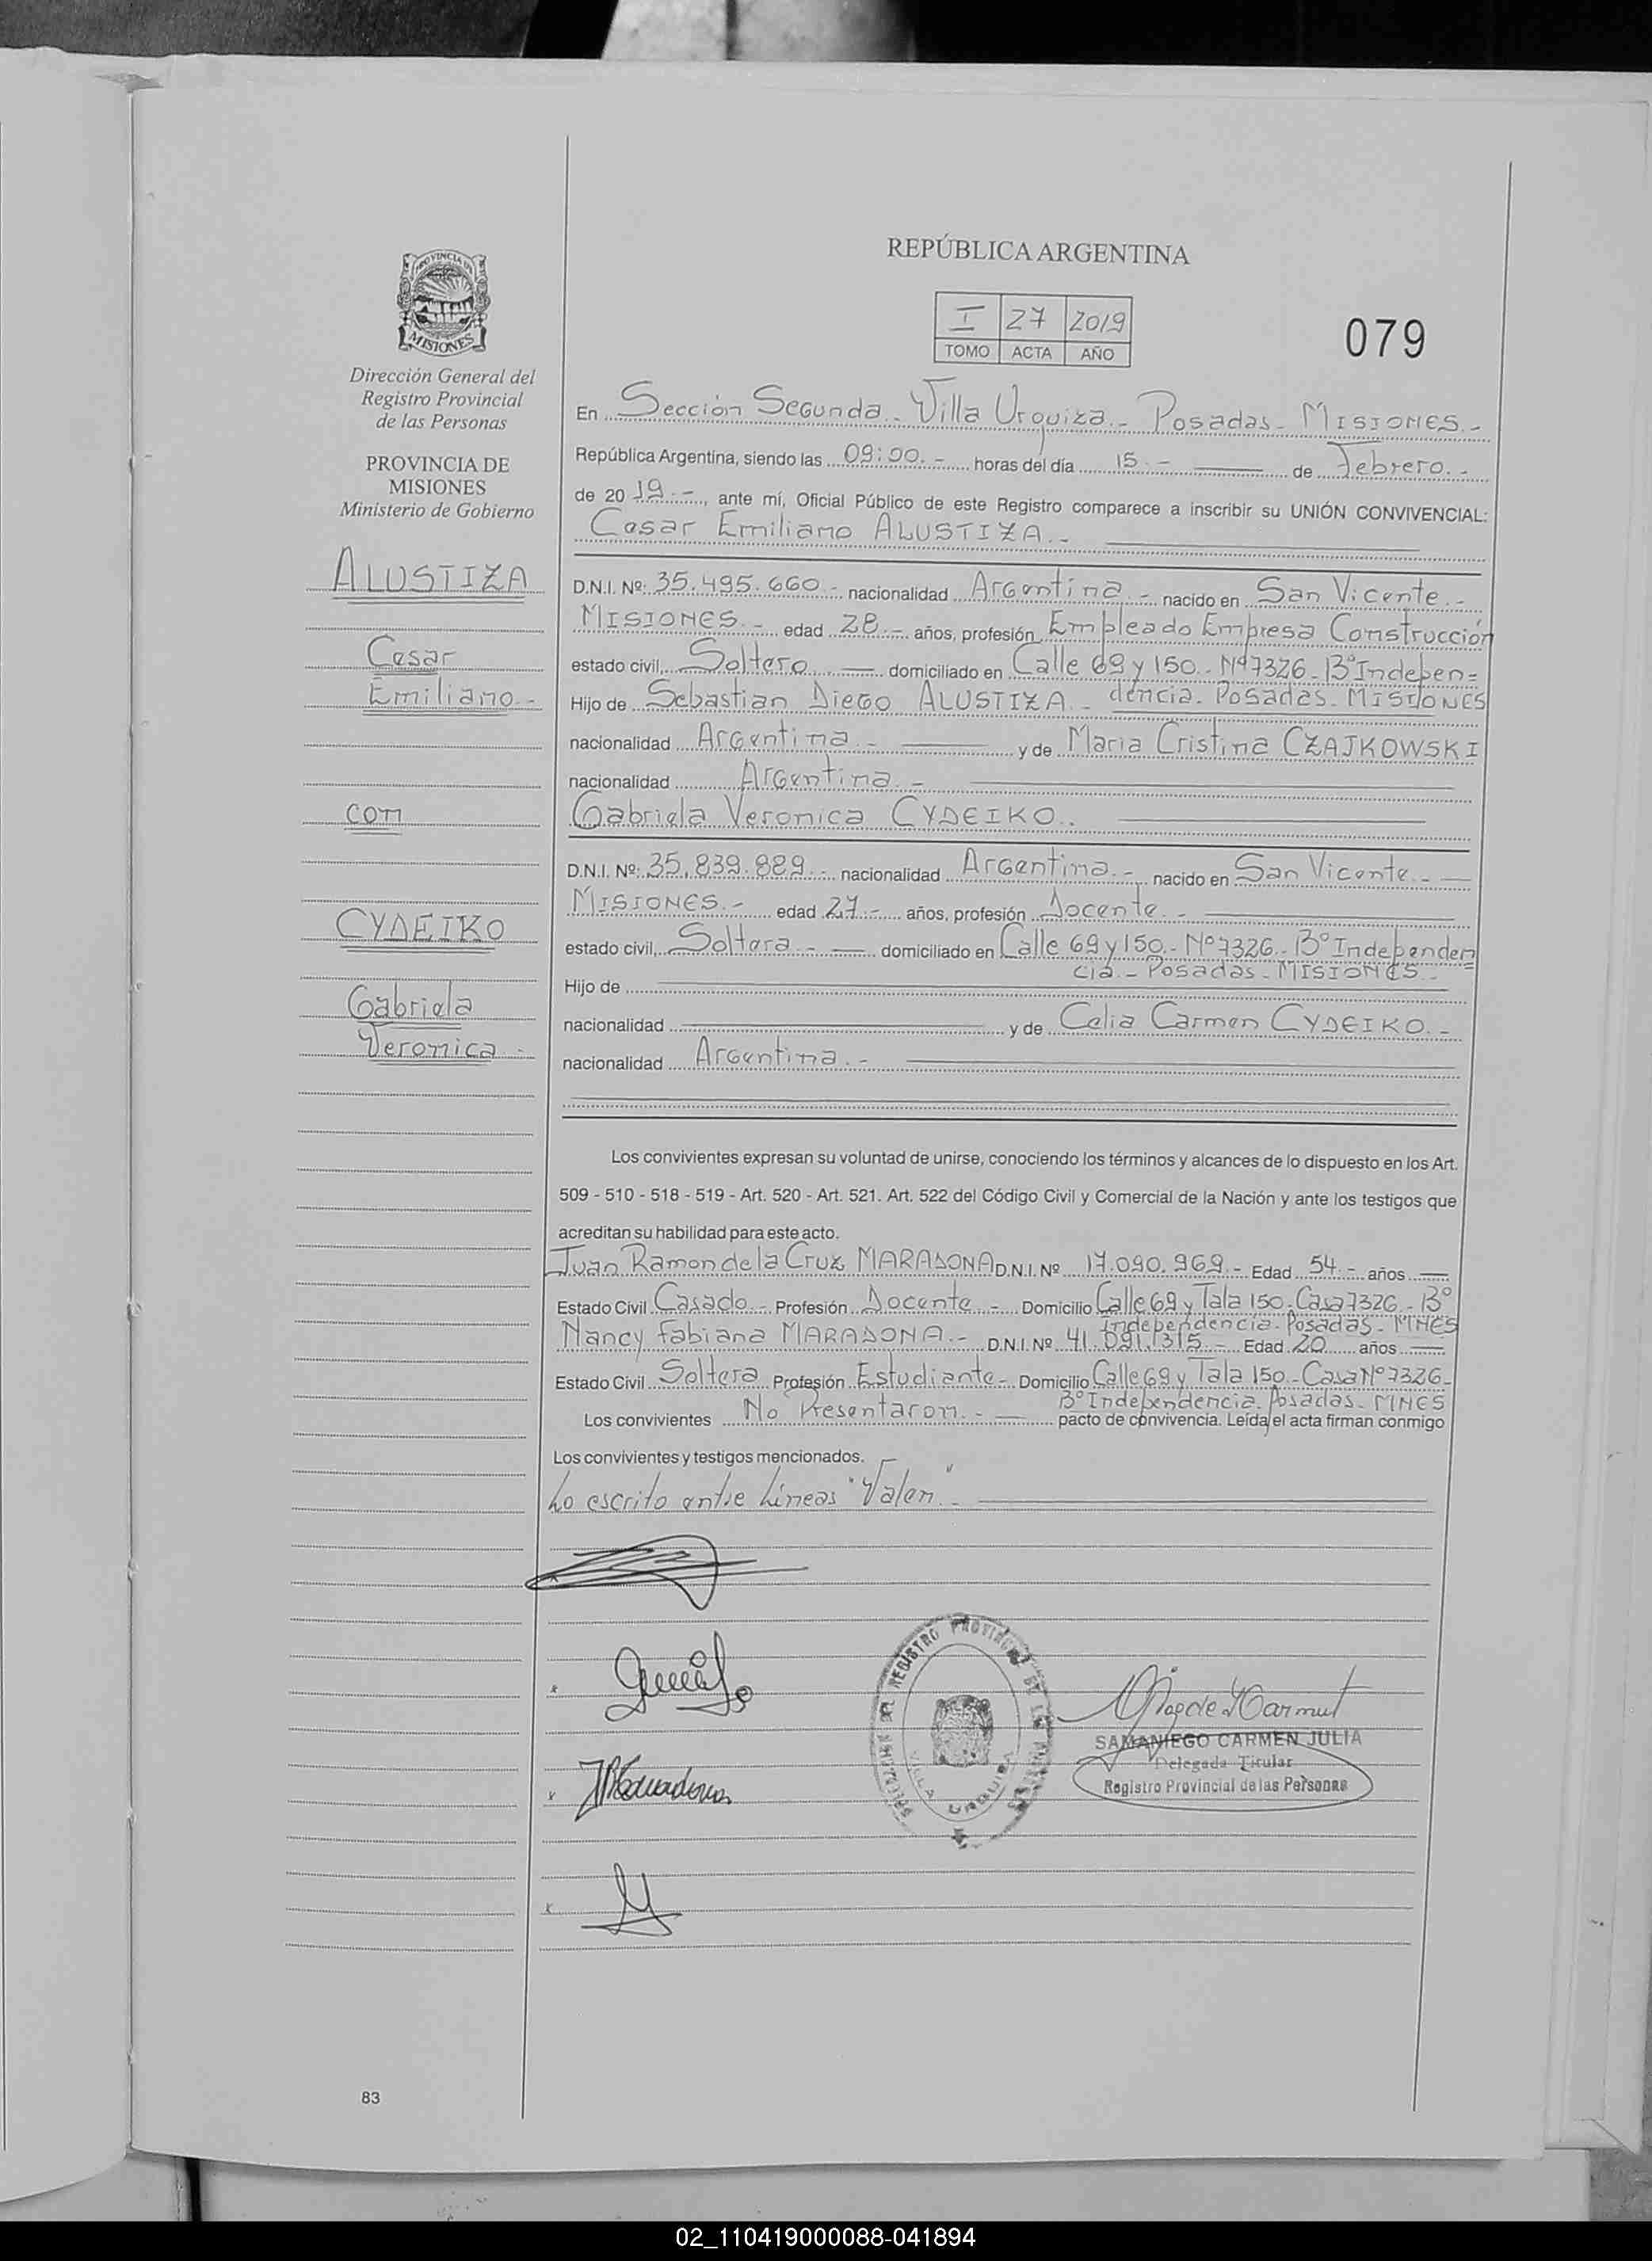 REPÚBLICA ARGENTINA
I 27 2019
TOMO ACTA AÑO
079
PROVINCIA DE
MISIONES
Dirección General del
Registro Provincial
de las Personas
PROVINCIA DE
MISIONES
Ministerio de Gobierno
ALUSTIZA
Cesar
Emiliano.-
con
CYDEIKO
Gabriela
Veronica.-
En Sección Segunda.- Villa Urquiza.- Posadas.- MISIONES.-
República Argentina, siendo las 09:00.- horas del día 15.- de Febrero.-
de 2019.-, ante mí, Oficial Público de este Registro comparece a inscribir su UNIÓN CONVIVENCIAL:
Cesar Emiliano ALUSTIZA.-
D.N.I. Nº: 35.495.660.- nacionalidad Argentina.- nacido en San Vicente.-
MISIONES.- edad 28.- años, profesión Empleado Empresa Construcción
estado civil, Soltero domiciliado en Calle 69 y 150.- Nº7326.- Bº Indepen=
Hijo de Sebastian Diego ALUSTIZA.- dencia.- Posadas.- MISIONES
nacionalidad Argentina.- y de Maria Cristina CZAJKOWSKI
nacionalidad Argentina.-
Gabriela Veronica CYDEIKO.
D.N.I. Nº: 35.839.889.- nacionalidad Argentina.- nacido en San Vicente.-
MISIONES.- edad 27.- años, profesión Docente.-
estado civil, Soltera.- domiciliado en Calle 69 y 150.- Nº7326.- Bº Independen=
cia.- Posadas.- MISIONES.-
Hijo de
nacionalidad y de Celia Carmen CYDEIKO.-
nacionalidad Argentina.-
Los convivientes expresan su voluntad de unirse, conociendo los términos y alcances de lo dispuesto en los Art.
509 - 510 - 518 - 519 - Art. 520 - Art. 521. Art. 522 del Código Civil y Comercial de la Nación y ante los testigos que
acreditan su habilidad para este acto.
Juan Ramon de la Cruz MARADONA D.N.I. Nº 17.090.969.- Edad 54.- años
Estado Civil Casado.- Profesión Docente.- Domicilio Calle 69 y Tala 150.- Casa 7326.- Bº
Independencia.- Posadas.- MNES
Nancy Fabiana MARADONA.- D.N.I. Nº 41.091.315.- Edad 20 años
Estado Civil Soltera Profesión Estudiante.- Domicilio Calle 69 y Tala 150.- Casa Nº7326.-
Bº Independencia.- Posadas.- MNES
Los convivientes No Presentaron.- pacto de convivencia. Leída el acta firman conmigo
Los convivientes y testigos mencionados.
Lo escrito entre Líneas "Valen".-
REGISTRO PROVINCIAL DE LAS PERSONAS
VILLA URQUIZA
SAMANIEGO CARMEN JULIA
Delegada Titular
Registro Provincial de las Personas
83
02_110419000088-041894